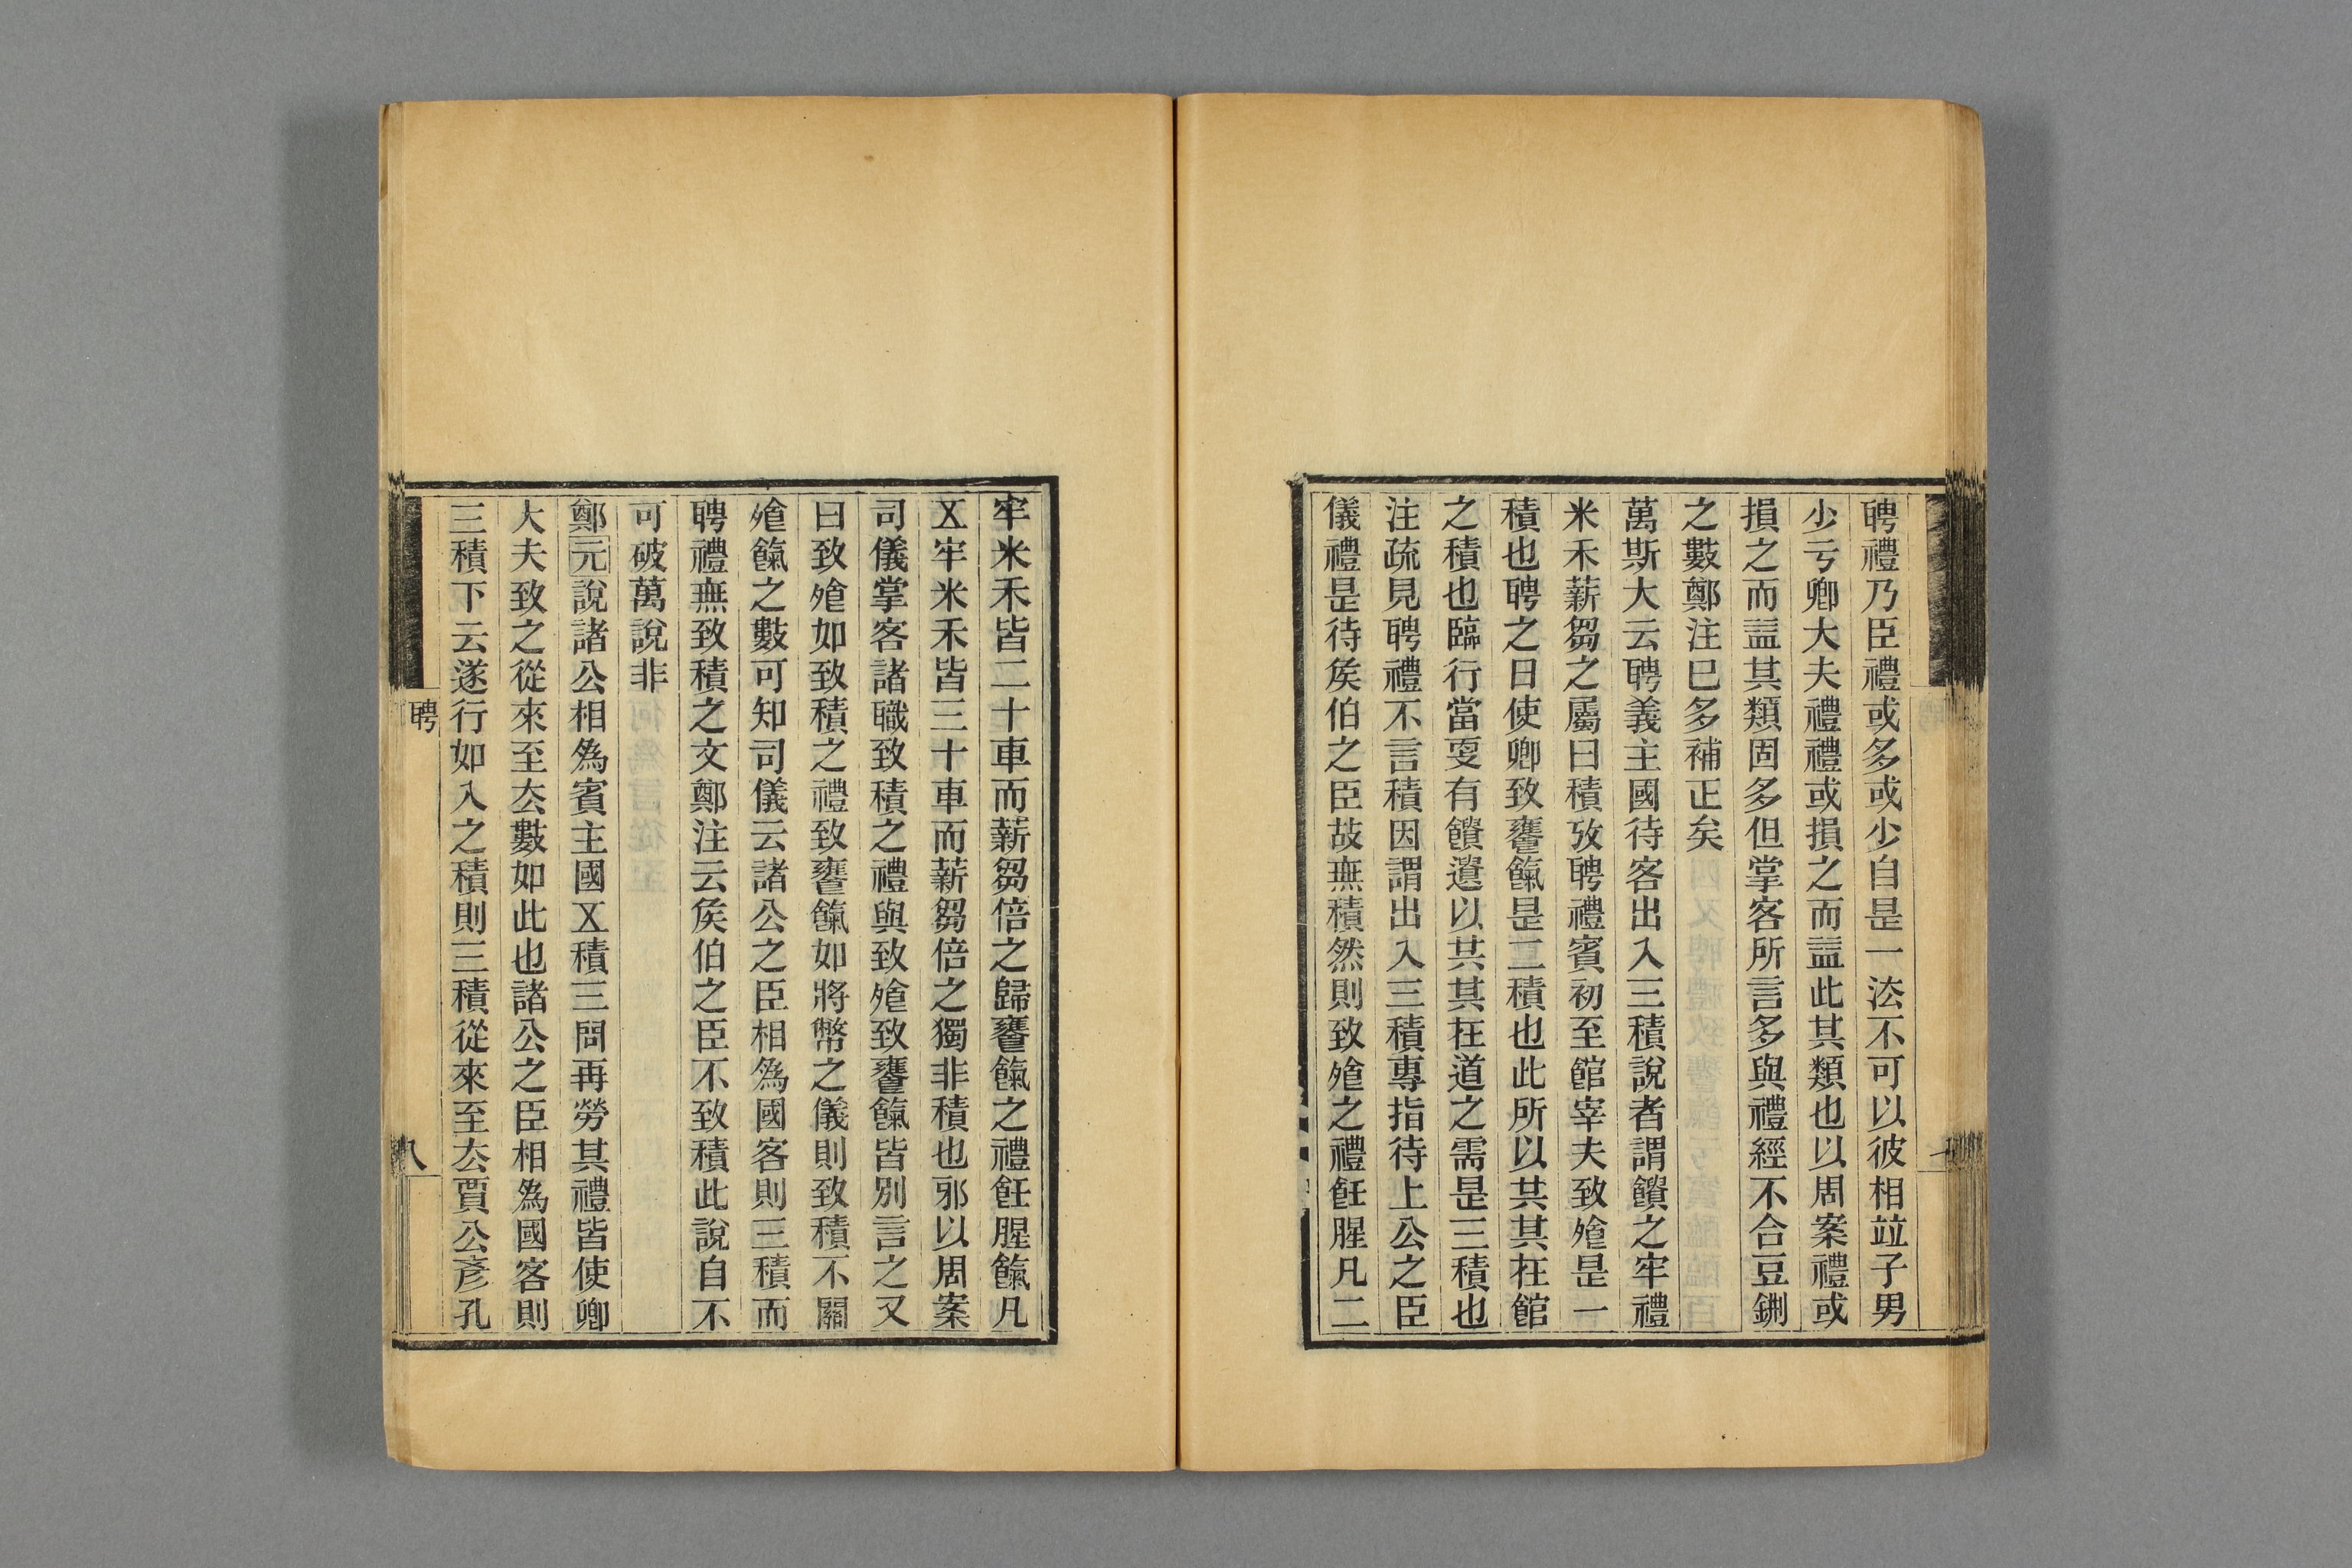 聘禮乃臣禮或多或少自是一㳒不可以彼相竝子男
少亏卿大夫禮禮或損之而益此其類也以周案禮或
損之而益其類固多但掌客所言多與禮經不合豆鉶
之數鄭注巳多補正矣
萬斯大云聘義主國待客出入三積說者謂饋之牢禮
米禾薪芻之屬曰積攷聘禮賓初至館宰夫致飱是一
積也聘之日使卿致饔餼是二積也此所以共其在館
之積也臨行當㪅有饋遺以共其在道之需是三積也
注疏見聘禮不言積因謂出入三積專指待上公之臣
儀禮是待矦伯之臣故無積然則致飱之禮飪腥凡二
牢米禾皆二十車而薪芻倍之歸饔餼之禮飪腥餼凡
五牢米禾皆三十車而薪芻倍之獨非積也邪以周案
司儀掌客諸職致積之禮與致飱致饔餼皆別言之又
曰致飱如致積之禮致饔餼如將幣之儀則致積不關
飱餼之數可知司儀云諸公之臣相爲國客則三積而
聘禮無致積之文鄭注云矦伯之臣不致積此說自不
可破萬說非
鄭元說諸公相爲賓主國五積三問再勞其禮皆使卿
大夫致之從來至去數如此也諸公之臣相爲國客則
三積下云遂行如入之積則三積從來至去賈公彥孔
聘
八